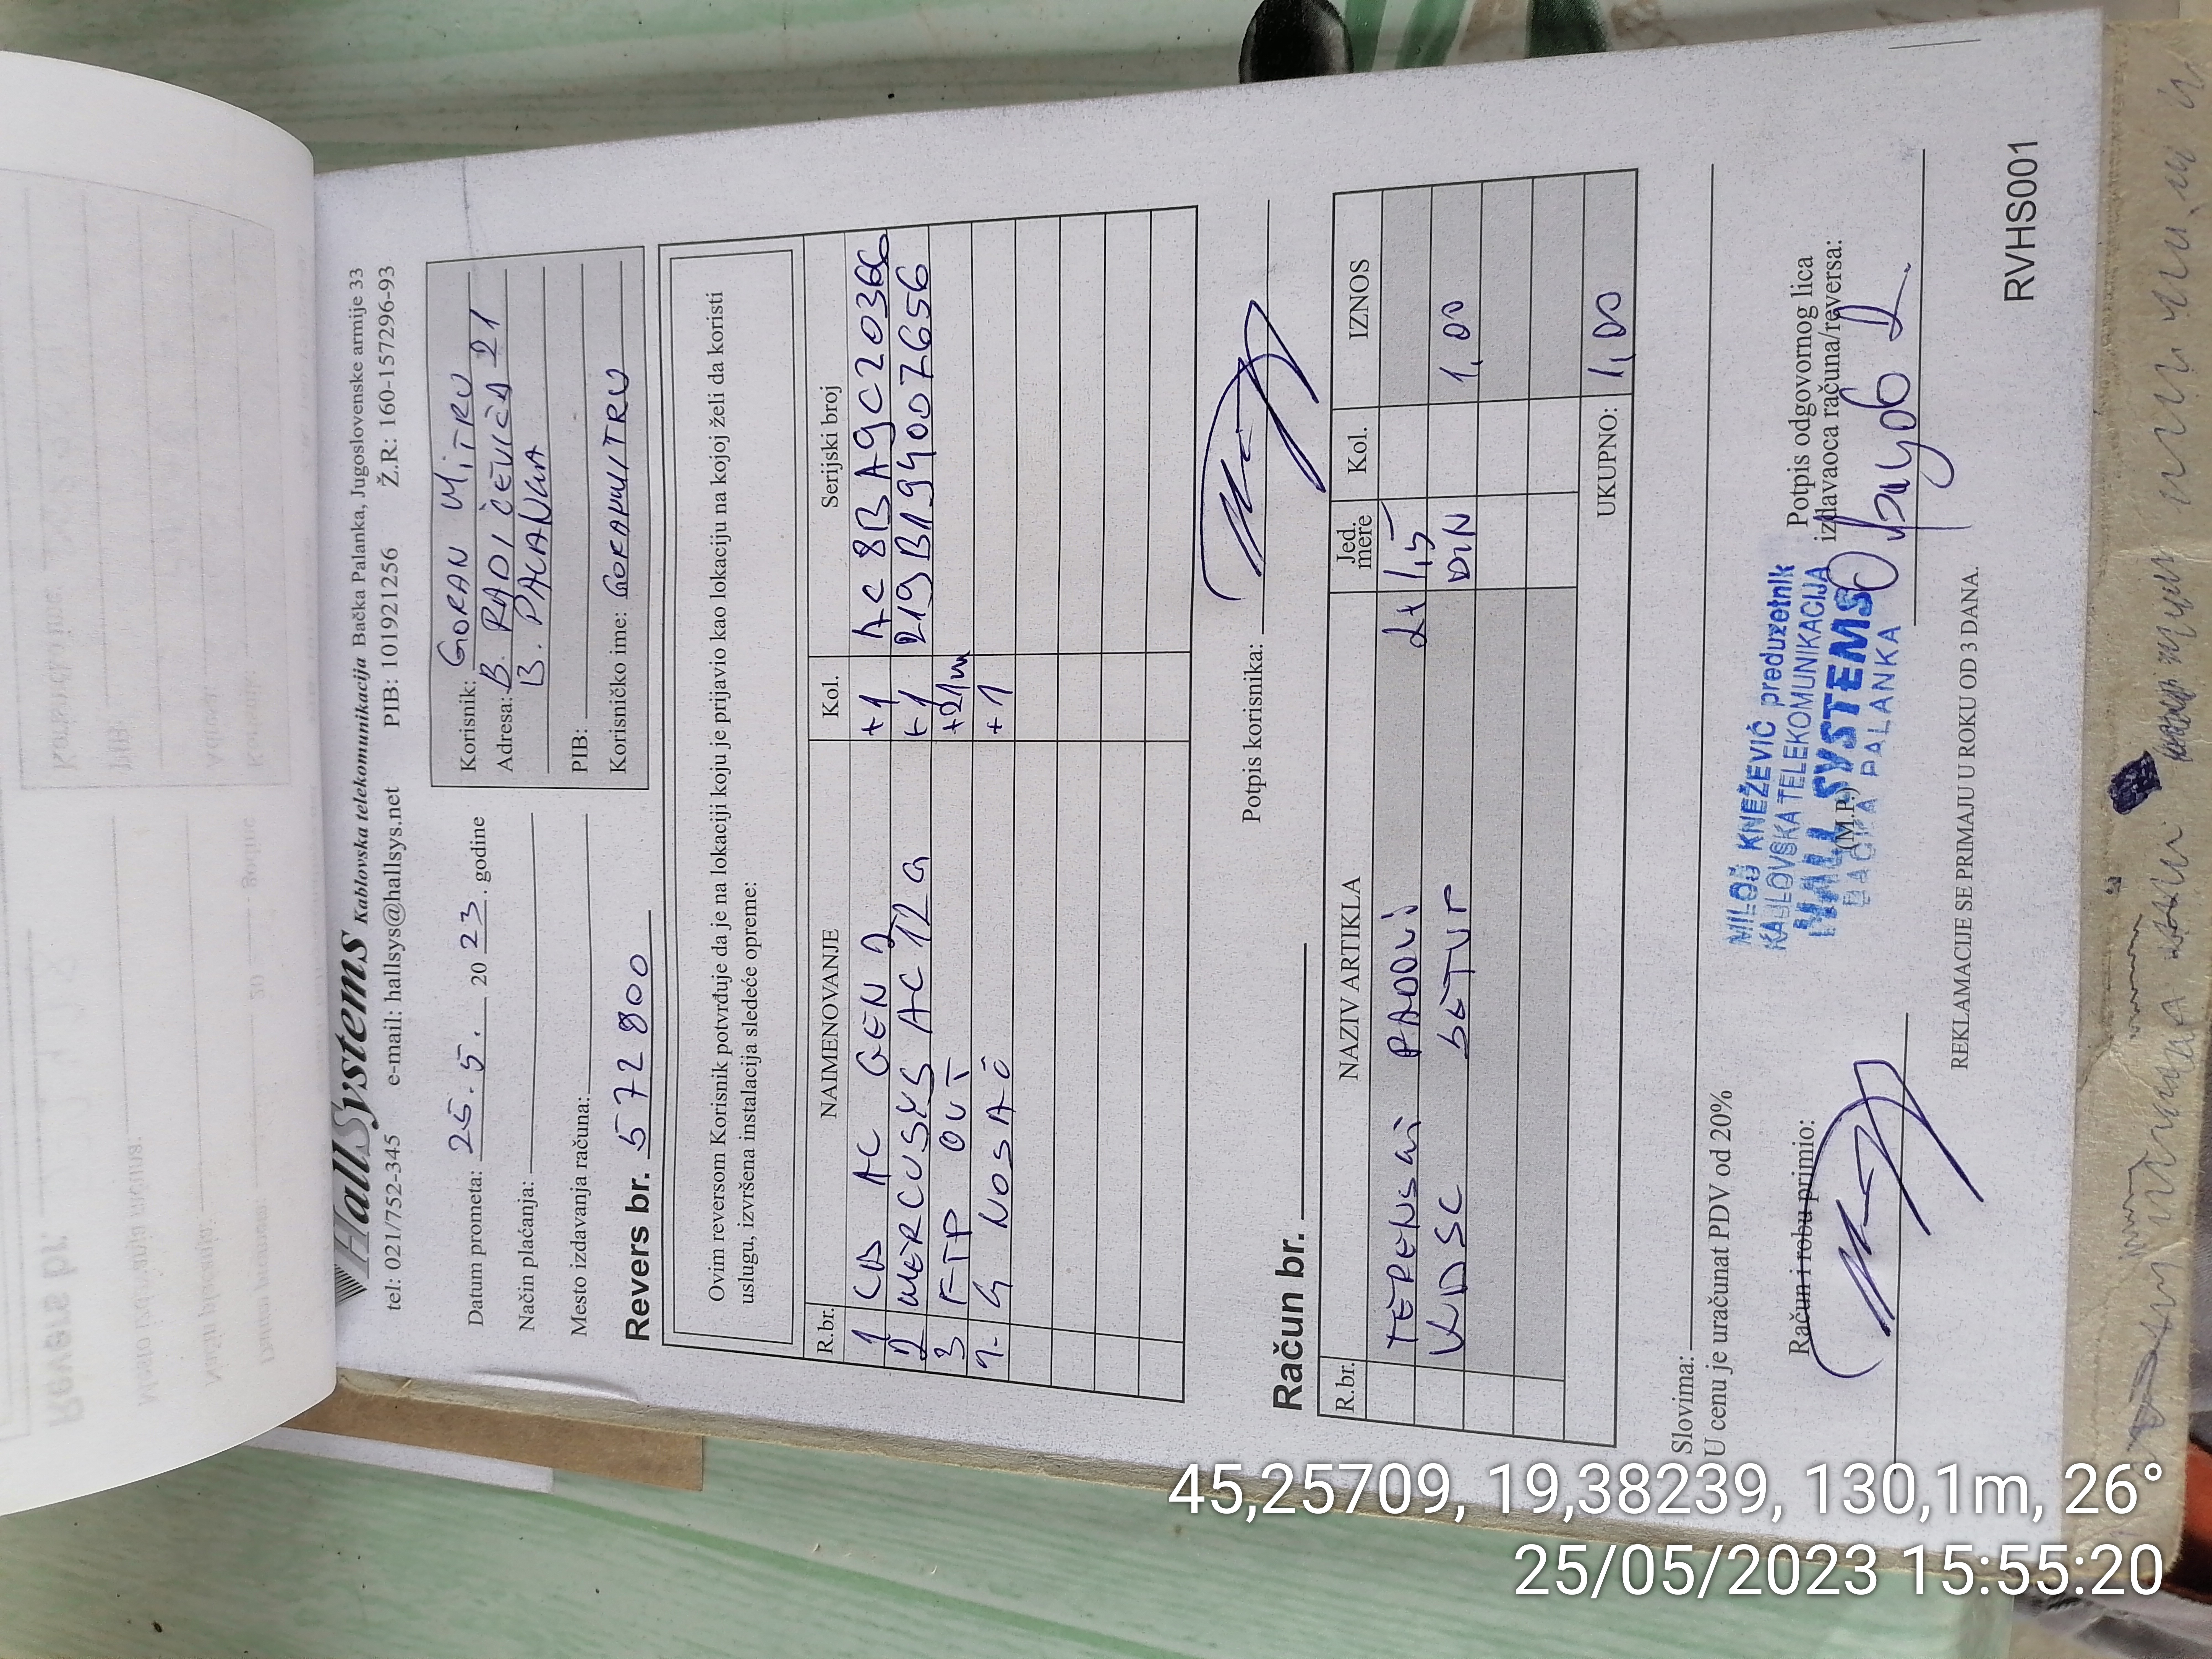 HallSystems Kablovska telekomunikacija Bačka Palanka, Jugoslovenske armije 33
tel: 021/752-345 e-mail: hallsys@hallsys.net PIB: 101921256 Ž.R: 160-157296-93
Datum prometa: 25.5. 20 23. godine
Način plaćanja:
Mesto izdavanja računa:
Korisnik: GORAN MITRU
Adresa: B. RADIČEVIĆA 21
B. PALANKA
PIB:
Korisničko ime: GORANMITRU
Revers br. 572800
Ovim reversom Korisnik potvrđuje da je na lokaciji koju je prijavio kao lokaciju na kojoj želi da koristi
uslugu, izvršena instalacija sledeće opreme:
R.br. NAIMENOVANJE Kol. Serijski broj
1 AC GEN 2 +1 AC8BA9C2036C
2 MERCUSYS AC12G +1 219B194007656
3 FTP OUT +21m
4. G NOSAČ +1
Potpis korisnika:
Račun br.
R.br. NAZIV ARTIKLA Jed. mere Kol. IZNOS
TERENSKI RADOVI
KDSC SETUP DIN 1,00
UKUPNO: 1,00
Slovima:
U cenu je uračunat PDV od 20%
Račun i robu primio:
MILOŠ KNEŽEVIĆ preduzetnik
KABLOVSKA TELEKOMUNIKACIJA
HALL SYSTEMS
BAČKA PALANKA
(M.P.)
Potpis odgovornog lica
izdavaoca računa/reversa:
REKLAMACIJE SE PRIMAJU U ROKU OD 3 DANA.
RVHS001
45,25709, 19,38239, 130,1m, 26°
25/05/2023 15:55:20